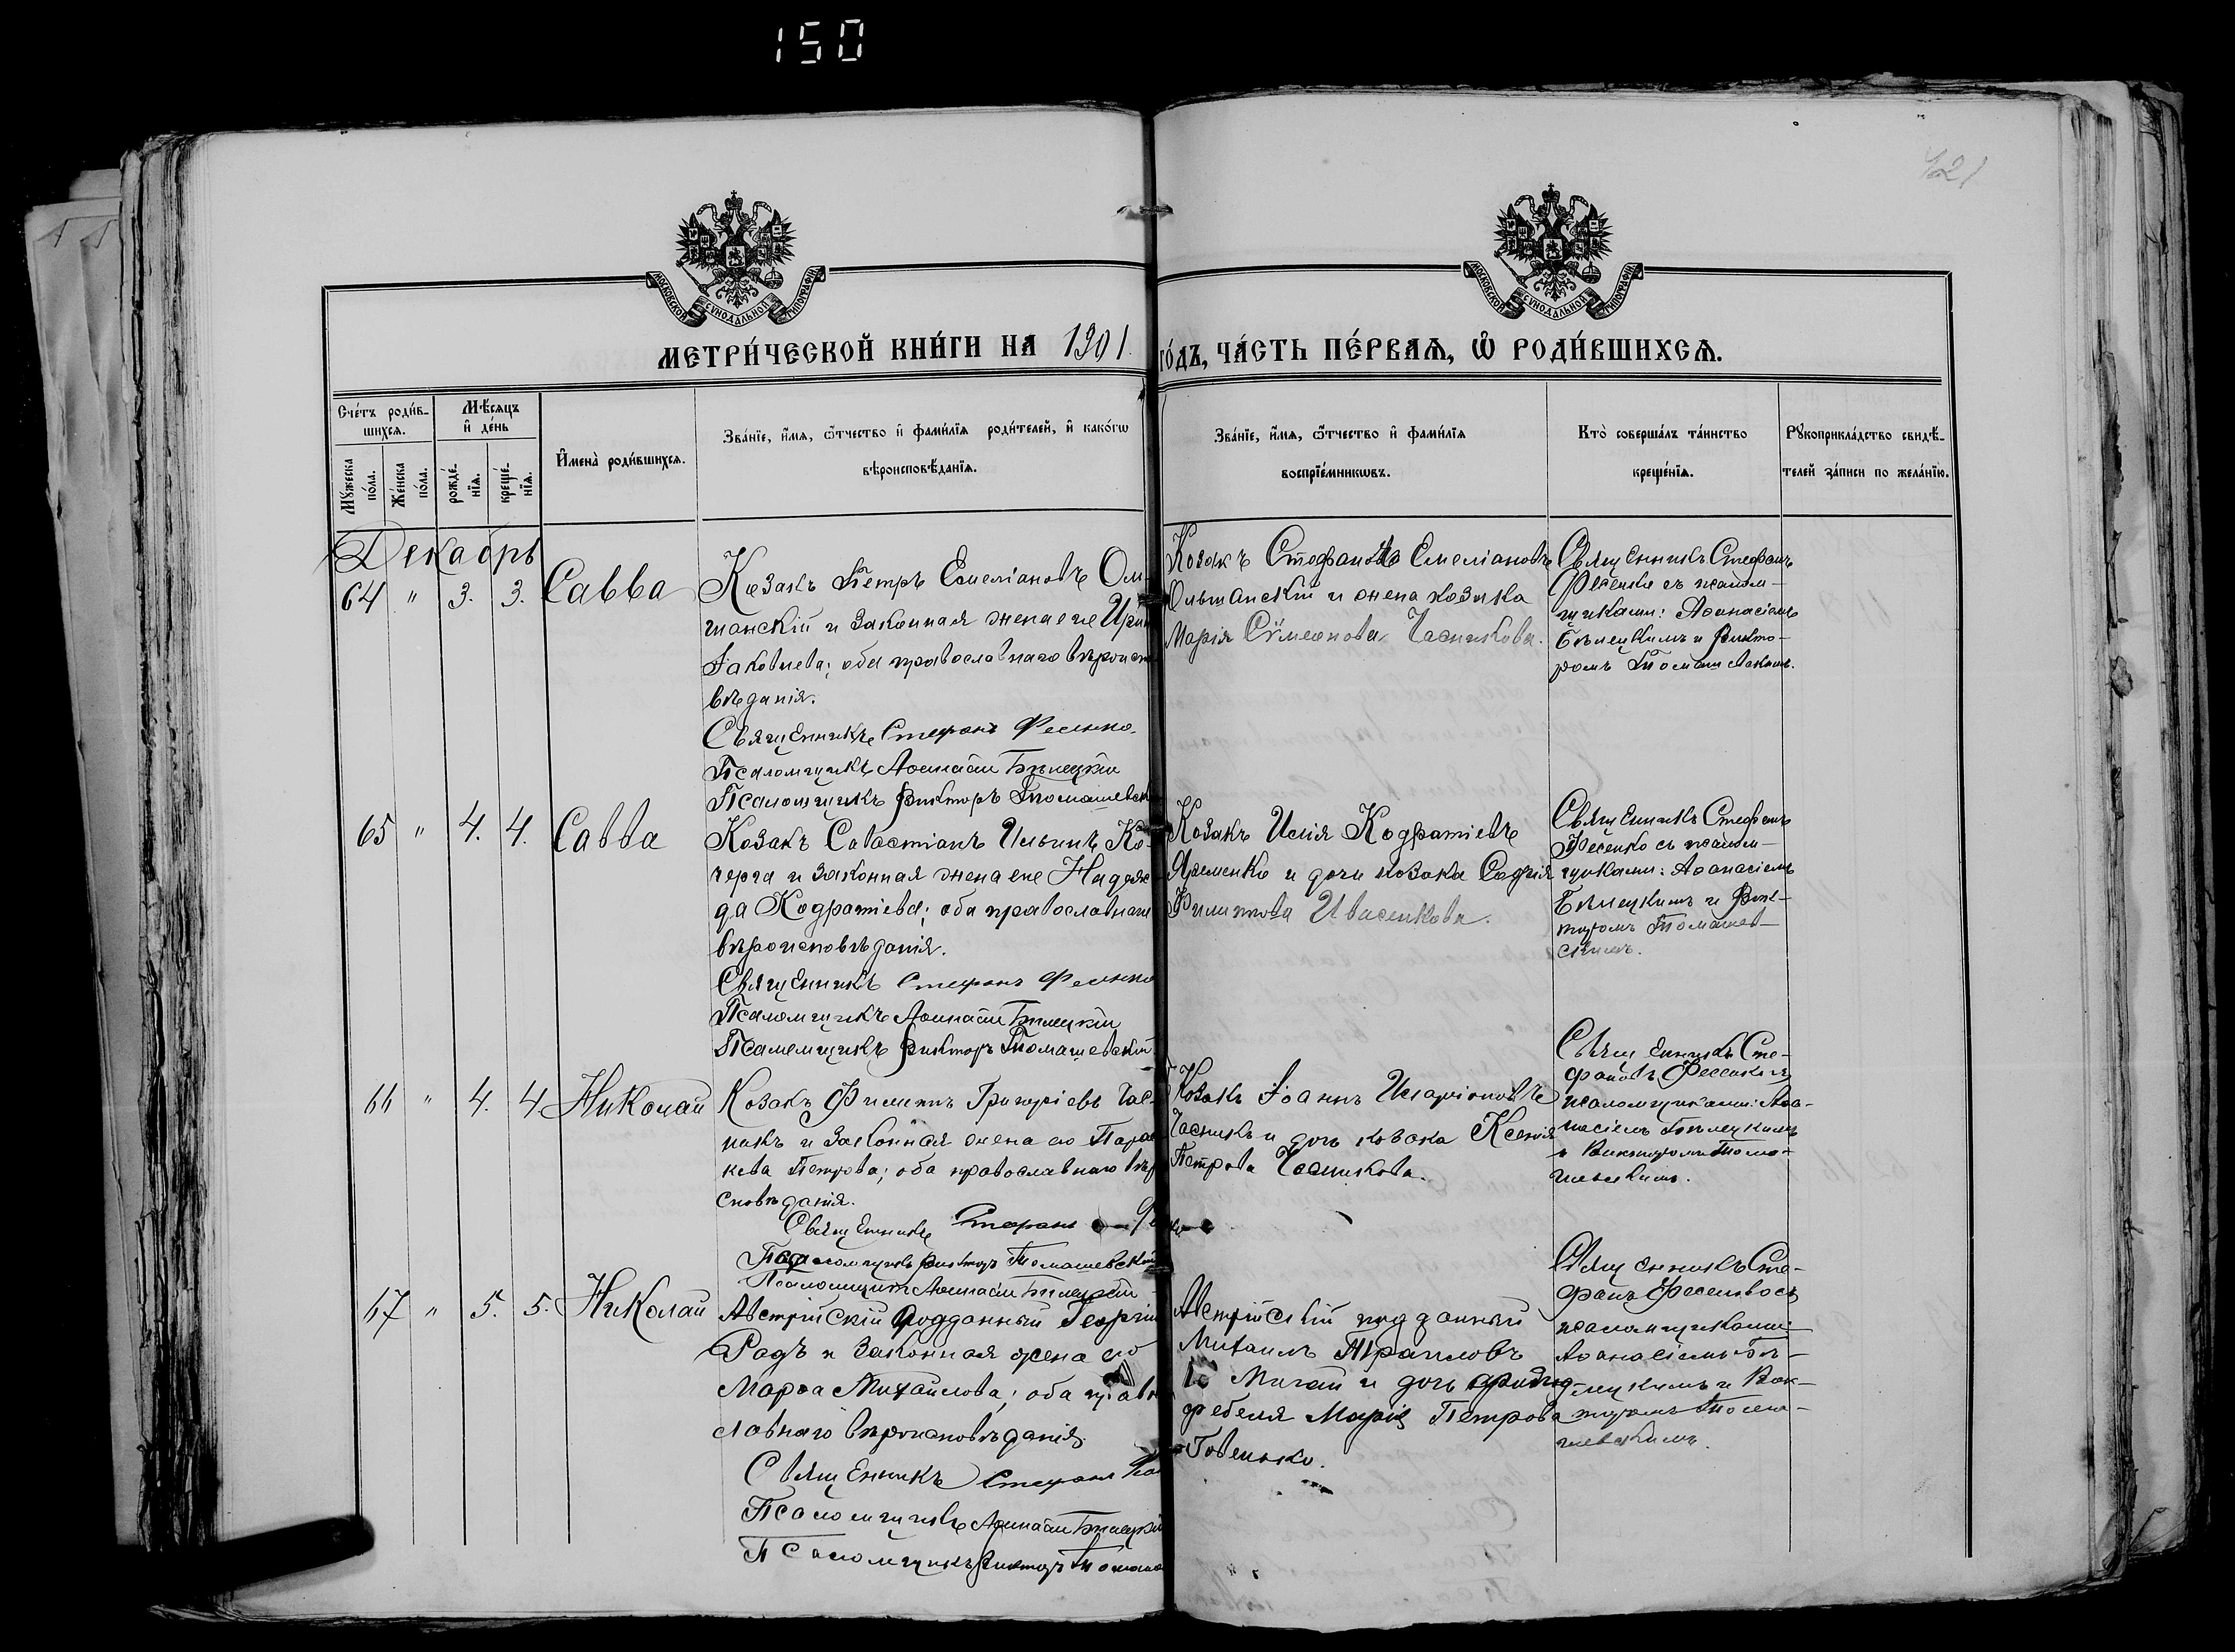 150
421
МОСКОВСКОЙ СУНОДАЛЬНОЙ ТИПОГРАФІИ
МОСКОВСКОЙ СУНОДАЛЬНОЙ ТИПОГРАФІИ
МЕТРИ́ЧЕСКОЙ КНИ́ГИ НА 1901 го́дъ, ЧА́СТЬ ПЕ́РВАѦ, Ѡ РОДИ́ВШИХСѦ.
Сче́тъ роди́в-
шихсѧ.
Мѣ́сѧцъ
и҆ де́нь
Мꙋ́жеска по́ла.
Же́нска по́ла.
рожде́нїѧ.
креще́нїѧ.
И҆мена̀ роди́вшихсѧ.
Зва́нїе, и҆́мѧ, ѻ҆́тчество и҆ фами́лїѧ роди́телей, и҆ како́гѡ
вѣроисповѣ́данїѧ.
Зва́нїе, и҆́мѧ, ѻ҆́тчество и҆ фами́лїѧ
воспрїе́мникѡвъ.
Кто̀ соверша́лъ та́инство
креще́нїѧ.
Рꙋкоприкла́дство свидѣ́-
телей за́писи по жела́нїю.
Декабрь
64 " 3. 3. Савва
Козакъ Петръ Емеліановъ Ол-
шанскій и законная жена его Ири
Іаковлева; оба православнаго вѣроисп
вѣданія.
Священникъ Стефанъ Фесенко.
Псаломщикъ Аѳанасій Бѣлецкій
Псаломщикъ Викторъ Томашевск
Козакъ Стефанъ Емеліановъ
Ольшанскій и жена козака
Марія Сѵмеонова Часникова.
Священникъ Стефанъ
Фесенко съ псалом-
щиками: Аѳанасіемъ
Бѣлецкимъ и Викто-
ромъ Томашевскимъ.
65 " 4. 4. Савва
Козакъ Савастіанъ Ильинъ Ко-
черга и законная жена его Надеж-
да Кодратіева; оба православнаго
вѣроисповѣданія.
Священникъ Стефанъ Фесенко
Псаломщикъ Аѳанасій Бѣлецкій
Псаломщикъ Викторъ Томашевскій
Козакъ Илія Кодратіевъ
Яременко и дочь козака Софія
Филипова Ивасенкова.
Священникъ Стефанъ
Фесенко съ псалом-
щиками: Аѳанасіемъ
Бѣлецкимъ и Вик-
торомъ Томашев-
скимъ.
66 " 4. 4 Николай
Козакъ Филиппъ Григоріевъ Час-
никъ и законная жена его Парас
кева Петрова; оба православнаго вѣр
сповѣданія.
Священникъ Стефанъ
Псаломщикъ Викторъ Томашевскій
Псаломщикъ Аѳанасій Бѣлецкій
Козакъ Іоаннъ Иларіоновъ
Часникъ и дочь козака Ксенія
Петрова Часникова.
Священникъ Сте-
фанъ Фесенко съ
псаломщиками: Аѳа-
насіемъ Бѣлецкимъ
и Викторомъ Тома-
шевскимъ.
67 " 5. 5. Николай
Австрійскій подданный Георгій
Радъ и законная жена его
Марѳа Михайлова; оба право
славнаго вѣроисповѣданія.
Священникъ Стефанъ
Псаломщикъ Аѳанасій Бѣлецкій
Псаломщикъ Викторъ Томаш
Австрійскій подданный
Михаилъ
и дочь фельд-
фебеля Марія Петрова
Говенько.
Священникъ Сте-
фанъ Фесенко съ
псаломщиками
Аѳанасіемъ Бѣ-
лецкимъ и Вик-
торомъ Тома-
шевскимъ.